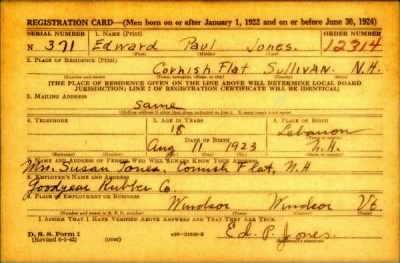 REGISTRATION CARD—(Men born on or after January 1, 1922 and on or before June 30, 1924)
SERIAL NUMBER 1. NAME (Print) ORDER NUMBER
N 371 Edward Paul Jones. 12314
(First) (Middle) (Last)
2. PLACE OF RESIDENCE (Print)
Cornish Flat Sullivan. N.H.
[THE PLACE OF RESIDENCE GIVEN ON THE LINE ABOVE WILL DETERMINE LOCAL BOARD
JURISDICTION; LINE 2 OF REGISTRATION CERTIFICATE WILL BE IDENTICAL]
3. MAILING ADDRESS
Same
4. TELEPHONE 5. AGE IN YEARS 6. PLACE OF BIRTH
18 Lebanon
DATE OF BIRTH
Aug 11 1923 N.H.
7. NAME AND ADDRESS OF PERSON WHO WILL ALWAYS KNOW YOUR ADDRESS
Mrs. Susan Jones, Cornish Flat, N.H
8. EMPLOYER'S NAME AND ADDRESS
Goodyear Rubber Co.
9. PLACE OF EMPLOYMENT OR BUSINESS
Windsor Windsor Vt.
I AFFIRM THAT I HAVE VERIFIED ABOVE ANSWERS AND THAT THEY ARE TRUE.
D. S. S. Form 1
(Revised 6-1-42) (over)
Ed. P. Jones.
(Registrant's signature)